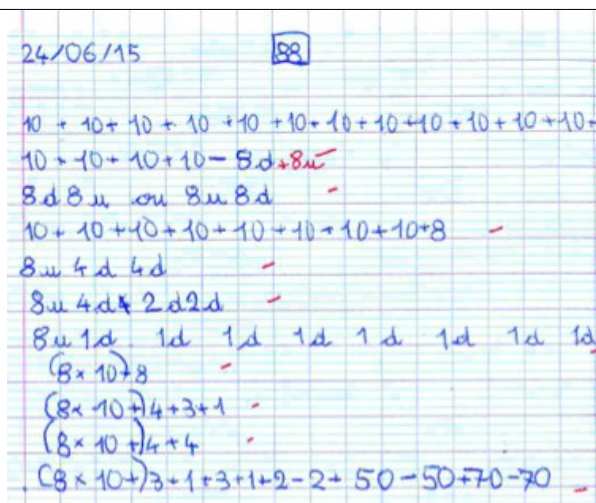 24/06/15 88
10 + 10 + 10 + 10 + 10 + 10 + 10 + 10 + 10 + 10 + 10 + 10 +
10 + 10 + 10 + 10 - 8d + 8u
8d 8u ou 8u 8d
10 + 10 + 10 + 10 + 10 + 10 + 10 + 10 + 8
8u 4d 4d
8u 4d 2d 2d
8u 1d 1d 1d 1d 1d 1d 1d 1d
(8 × 10) + 8
(8 × 10 +) 4 + 3 + 1
(8 × 10 +) 4 + 4
(8 × 10 +) 3 + 1 + 3 + 1 + 2 - 2 + 50 - 50 + 70 - 70